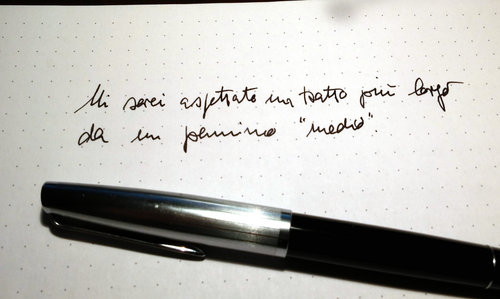 Mi sarei aspettato un tratto più largo
da un pennino "medio".